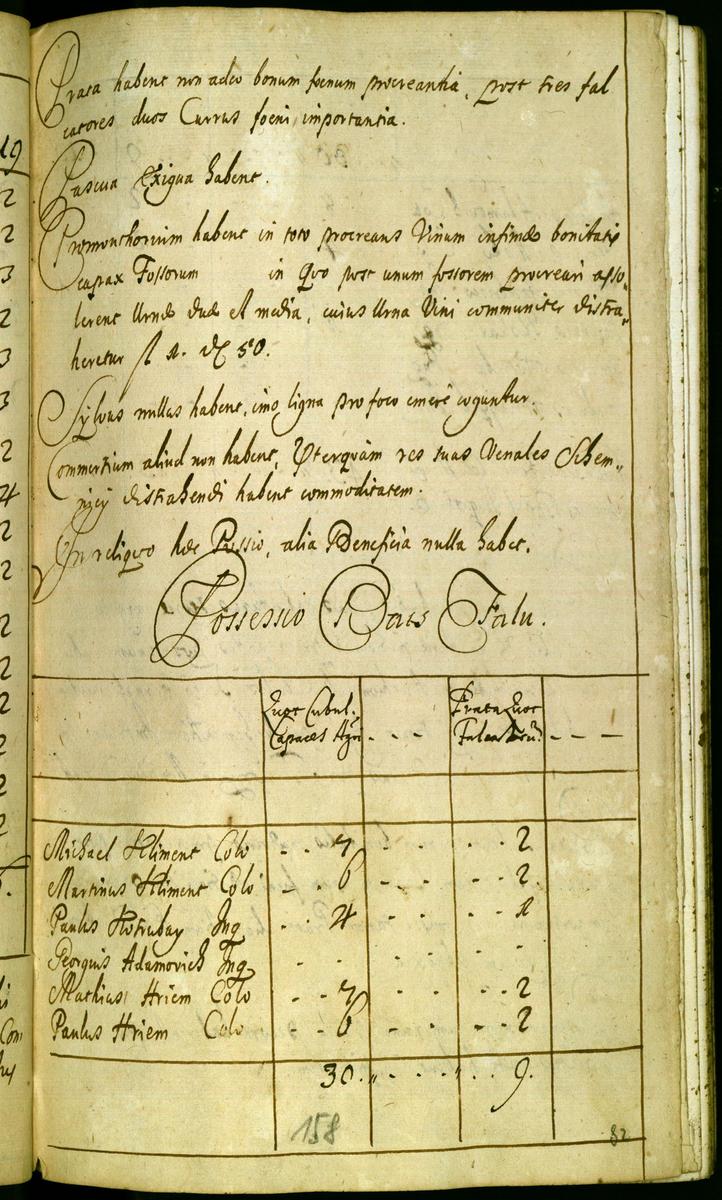 Prata habent non adeo bonum foenum procreantia, post tres fal
catores duos Currus foeni importantia.
Pascua Exigua habent.
Promonthorium habent in toto procreans Vinum infimae bonitatis
capax Fossorum in Quo post unum fossorem procreari asso„
lerent Urnae duae et media, cuius Urna Vini communiter distra„
heretur fl 1. d 50.
Sylvas nullas habent, imo ligna pro foco emere coguntur.
Commertium aliud non habent, Praeterquam res suas Venales Schem„
nicij distrahendi habent commoditatem.
In reliquo haec Possio, alia Beneficia nulla habet.
Possessio Bacs Falu.
Quot Cubul.
Capaces Agri
Prata Quot
Falcatorũ
Michael Kliment Colo - - 7 - - - - - 2
Martinus Kliment Colo - - 6 - - - - - 2
Paulus Hotrubay Inq - - 4 - - - - - 1
Georgius Adamovich Inq - - - - - -
Mathias Hriem Colo - - 7 - - - - - 2
Paulus Hriem Colo - - 6 - - - - - 2
30. 9.
158
82
19
2
2
3
2
3
3
2
4
2
2
2
2
2
2
2
2